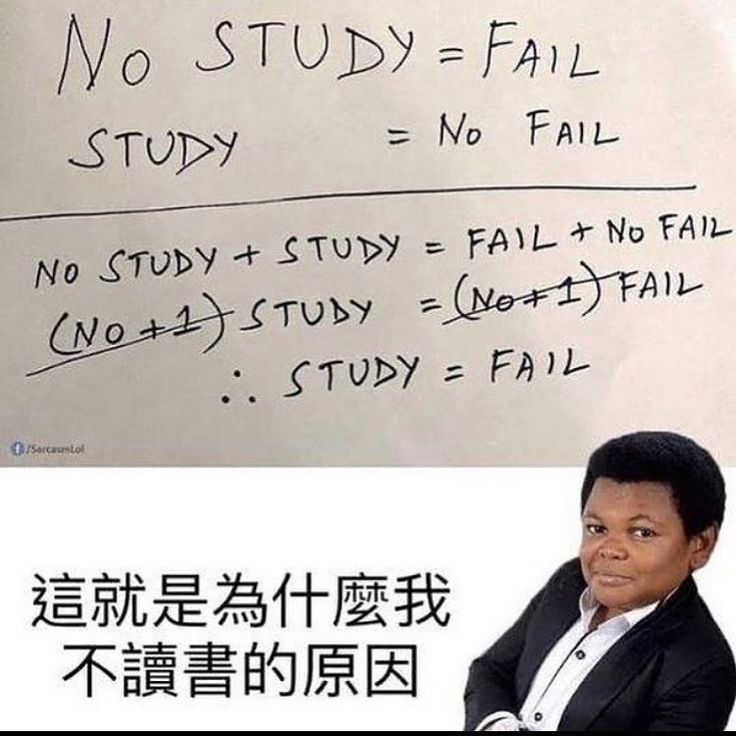 NO STUDY = FAIL
STUDY = NO FAIL
NO STUDY + STUDY = FAIL + NO FAIL
(NO + 1) STUDY = (NO + 1) FAIL
∴ STUDY = FAIL
f /SarcasmLol
這就是為什麼我
不讀書的原因